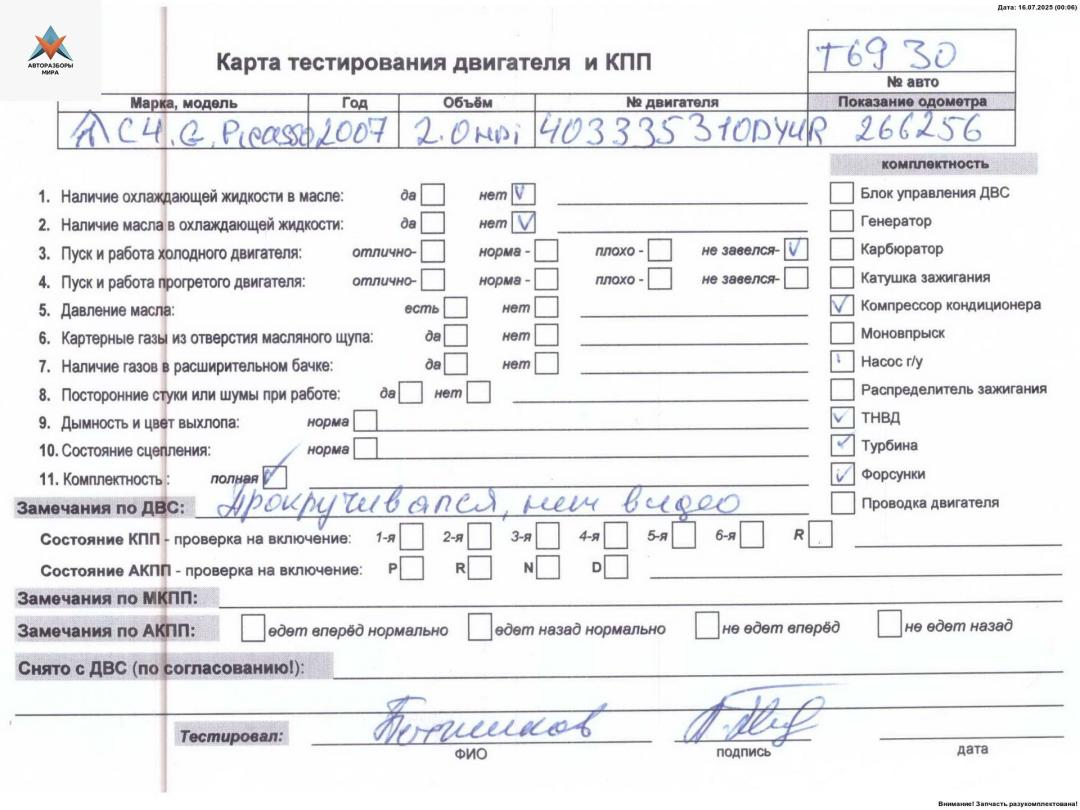 Дата: 16.07.2025 (00:06)
АВТОРАЗБОРЫ
МИРА
Карта тестирования двигателя и КПП
т6930
№ авто
Марка, модель Год Объём № двигателя Показание одометра
C4. G. Picasso 2007 2.0HDi 403335310DYUR 266256
комплектность
1. Наличие охлаждающей жидкости в масле: да нет V
Блок управления ДВС
2. Наличие масла в охлаждающей жидкости: да нет V
Генератор
3. Пуск и работа холодного двигателя: отлично- норма - плохо - не завелся- V
Карбюратор
4. Пуск и работа прогретого двигателя: отлично- норма - плохо - не завелся-
Катушка зажигания
5. Давление масла: есть нет
V Компрессор кондиционера
6. Картерные газы из отверстия масляного щупа: да нет
Моновпрыск
7. Наличие газов в расширительном бачке: да нет
Насос г/у
8. Посторонние стуки или шумы при работе: да нет
Распределитель зажигания
9. Дымность и цвет выхлопа: норма
V ТНВД
10. Состояние сцепления: норма
V Турбина
11. Комплектность: полная V
V Форсунки
Замечания по ДВС: Прокручивался, нет видео
Проводка двигателя
Состояние КПП - проверка на включение: 1-я 2-я 3-я 4-я 5-я 6-я R
Состояние АКПП - проверка на включение: P R N D
Замечания по МКПП:
Замечания по АКПП: едет вперёд нормально едет назад нормально не едет вперёд не едет назад
Снято с ДВС (по согласованию!):
Тестировал:
ФИО подпись дата
Внимание! Запчасть разукомплектована!